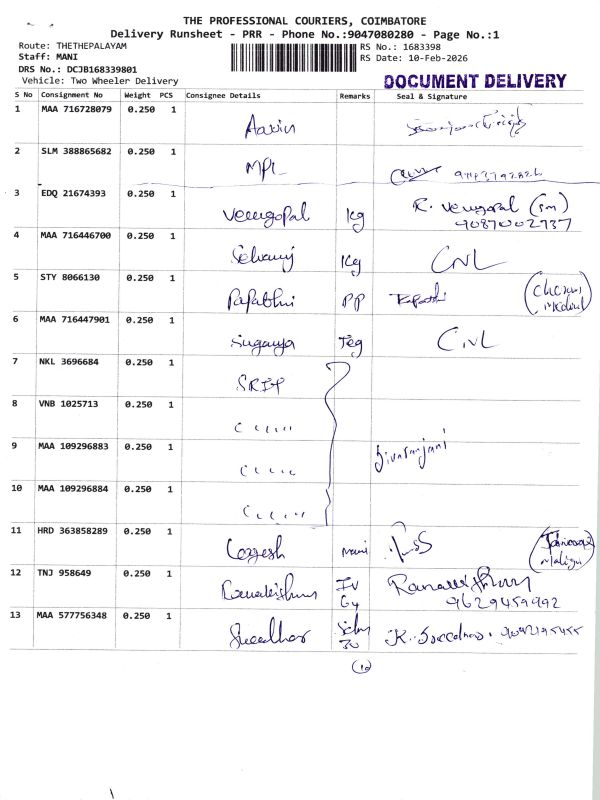 THE PROFESSIONAL COURIERS, COIMBATORE
Delivery Runsheet - PRR - Phone No.:9047080280 - Page No.:1
Route: THETHEPALAYAM
Staff: MANI
DRS No.: DCJB168339801
Vehicle: Two Wheeler Delivery
RS No.: 1683398
RS Date: 10-Feb-2026
DOCUMENT DELIVERY
S No Consignment No Weight PCS Consignee Details Remarks Seal & Signature
1 MAA 716728079 0.250 1
2 SLM 388865682 0.250 1 MPL
3 EDQ 21674393 0.250 1 Venugopal Kg R. Venugopal (sm)
9087002737
4 MAA 716446700 0.250 1 Selvaraj Kg CNL
5 STY 8066130 0.250 1 Papathi PP
6 MAA 716447901 0.250 1 Suganya CNL
7 NKL 3696684 0.250 1
8 VNB 1025713 0.250 1
9 MAA 109296883 0.250 1 Sivaranjani
10 MAA 109296884 0.250 1
11 HRD 363858289 0.250 1 Mani
12 TNJ 958649 0.250 1 Ramakrishnan
9629459992
13 MAA 577756348 0.250 1 Sreedhar
10